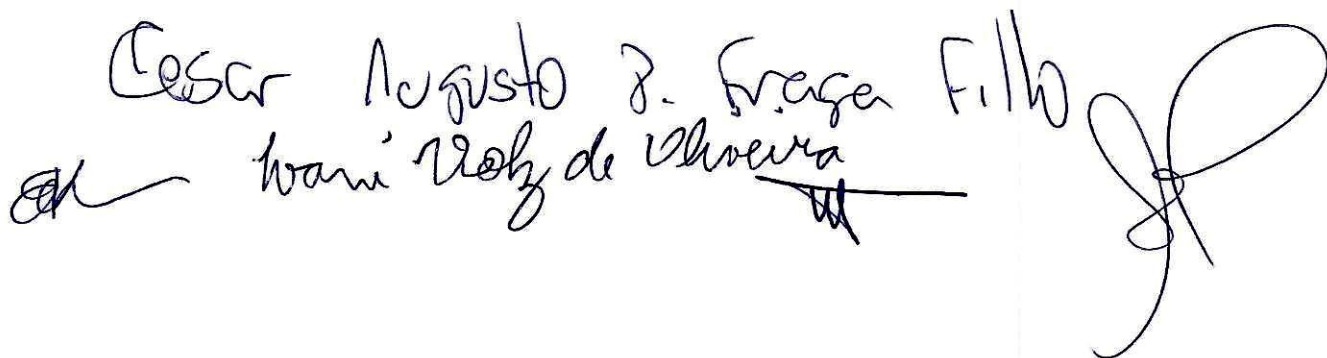 Cesar Augusto P. Fraga Filho
Ivani Volz de Oliveira